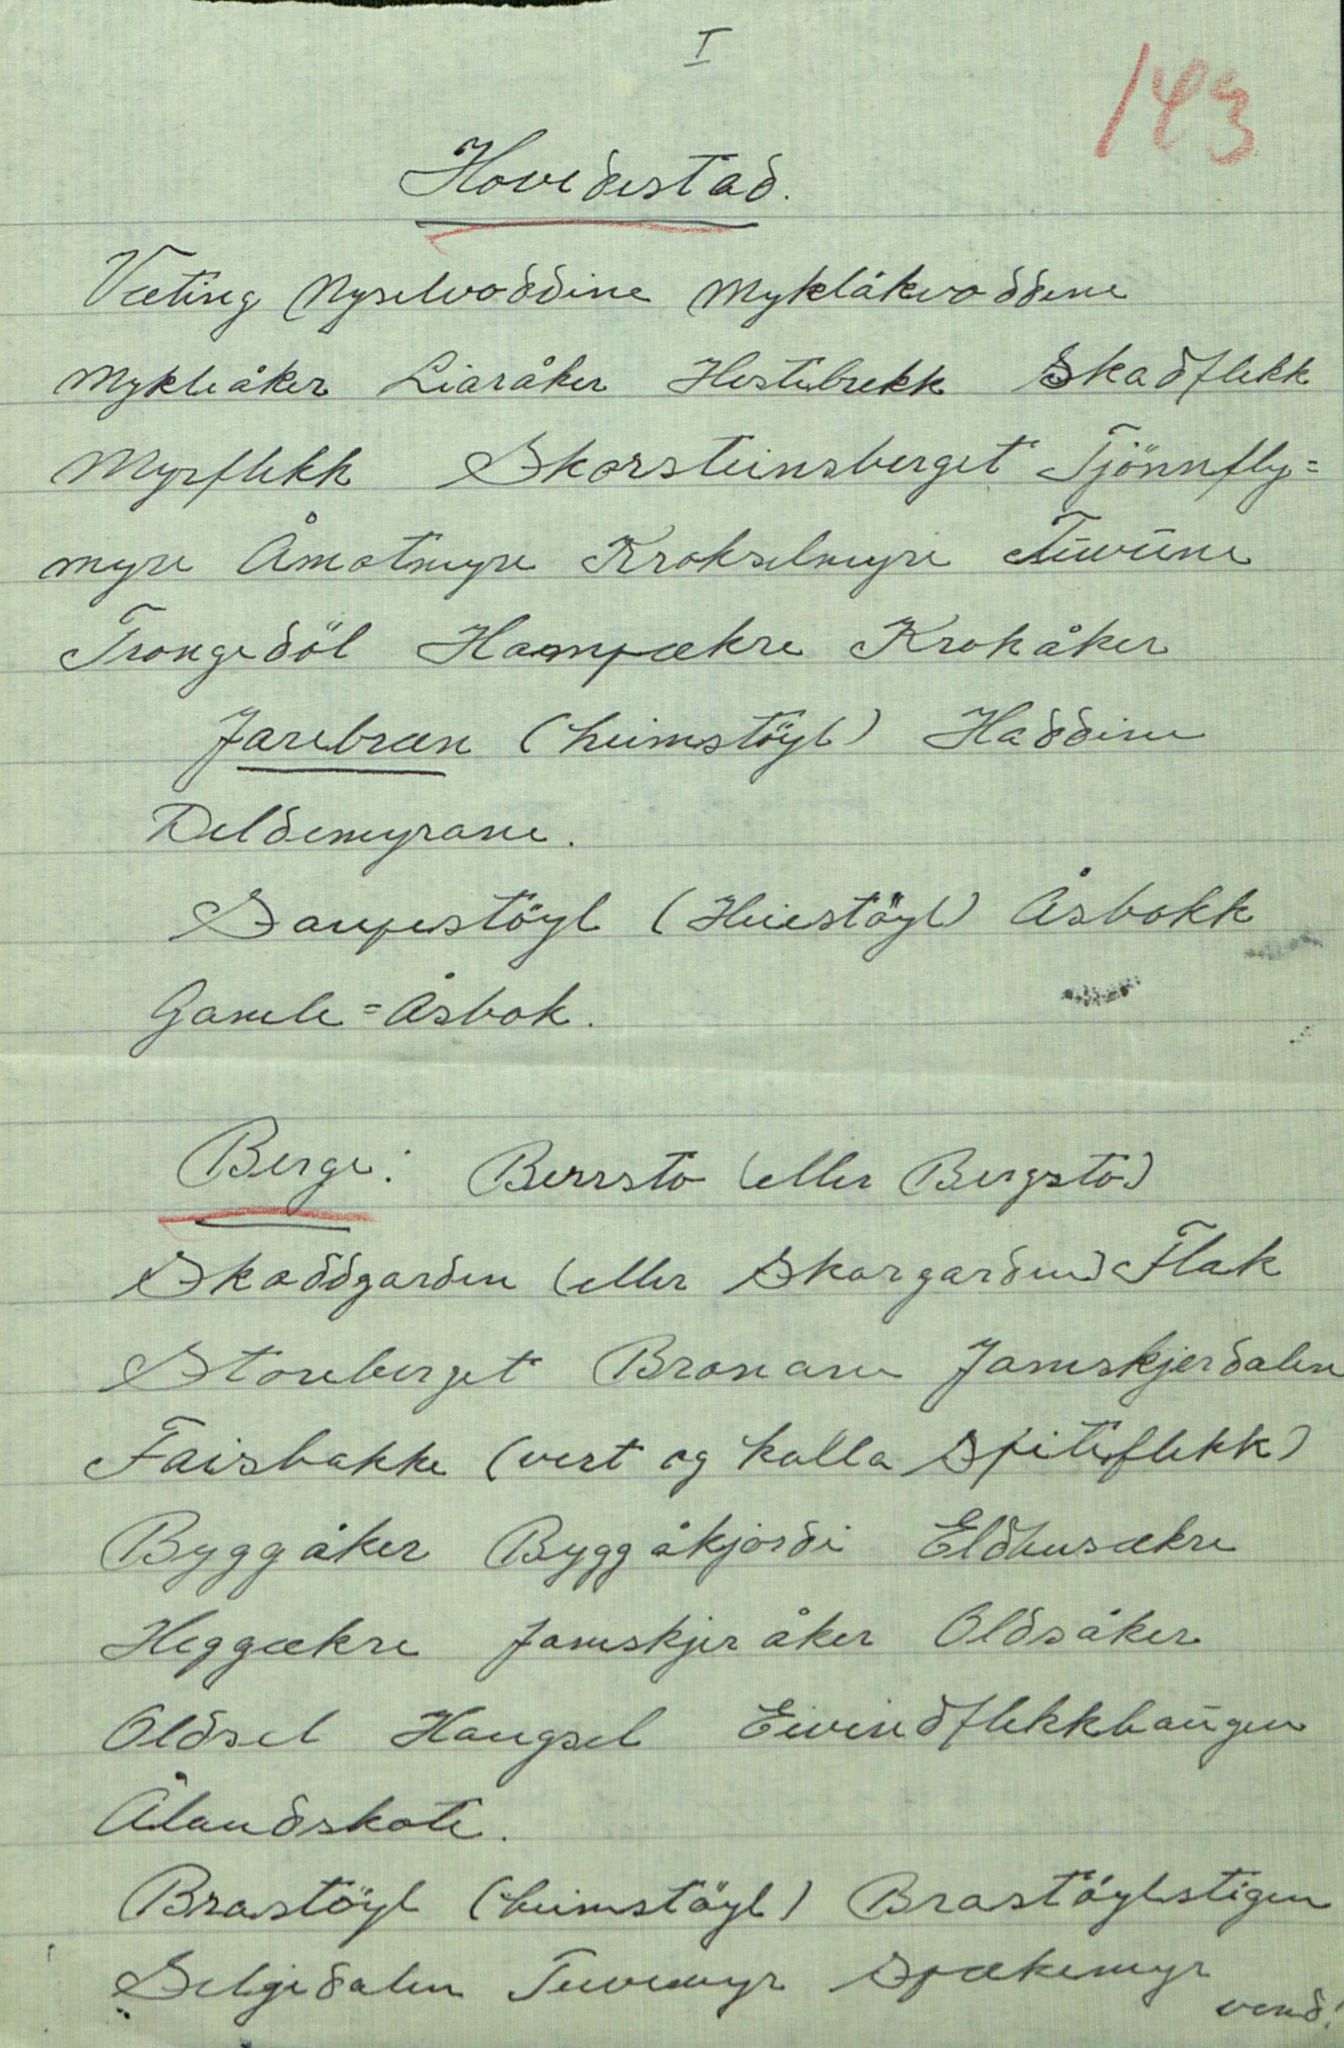 I
143
Hovedestad.
Væting Nyselvoddine Myklåkvoddene
Mykleåker Liaråker Hestebrekk Skadflekk
Myrflekk Skorsteinsberget Tjönnfly=
myre Åmotmyre Krokselmyre Tuvune
Trongedöl Hampækre Krokåker
Jarebræn (heimstöyl) Haddine
Deldemyrane.
Saupestöyl (Heiestöyl) Åsbokk
Gamle=Åsbok.
Berge: Berrstö (eller Bergstö)
Skoddgarden (eller Skorgarden) Flak
Storeberget Bronane Jamskjerdalen
Fairsbakke (vert og kalla Spiteflekk)
Byggåker Byggåkjordi Eldhusækre
Heggækre Jamskjeråker Oldsåker
Oldsel Haugsel Eivindflekkhaugen
Ålandskote.
Brastöyl (heimstöyl) Brastöylstigen
Selgedalen Tuvemyr Spækemyr
vend!